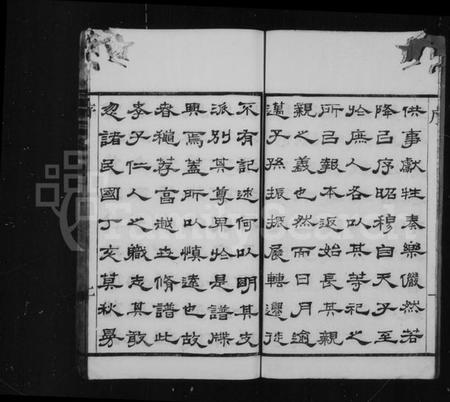 序
供事獻牲奏樂儼然若
降己序昭穆自天子至
於庶人各以其等祀之
所己報本返始長其親
親之義也然而日月逾
邁子孫振振展轉遷徙
不有記述何以明其支
派別其尊卑於是譜牒
興焉蓋所以慎遠也故
春穐荐宮越岦脩譜此
孝子仁人之職志其敢
忽諸民國丁亥莫秋曼
序